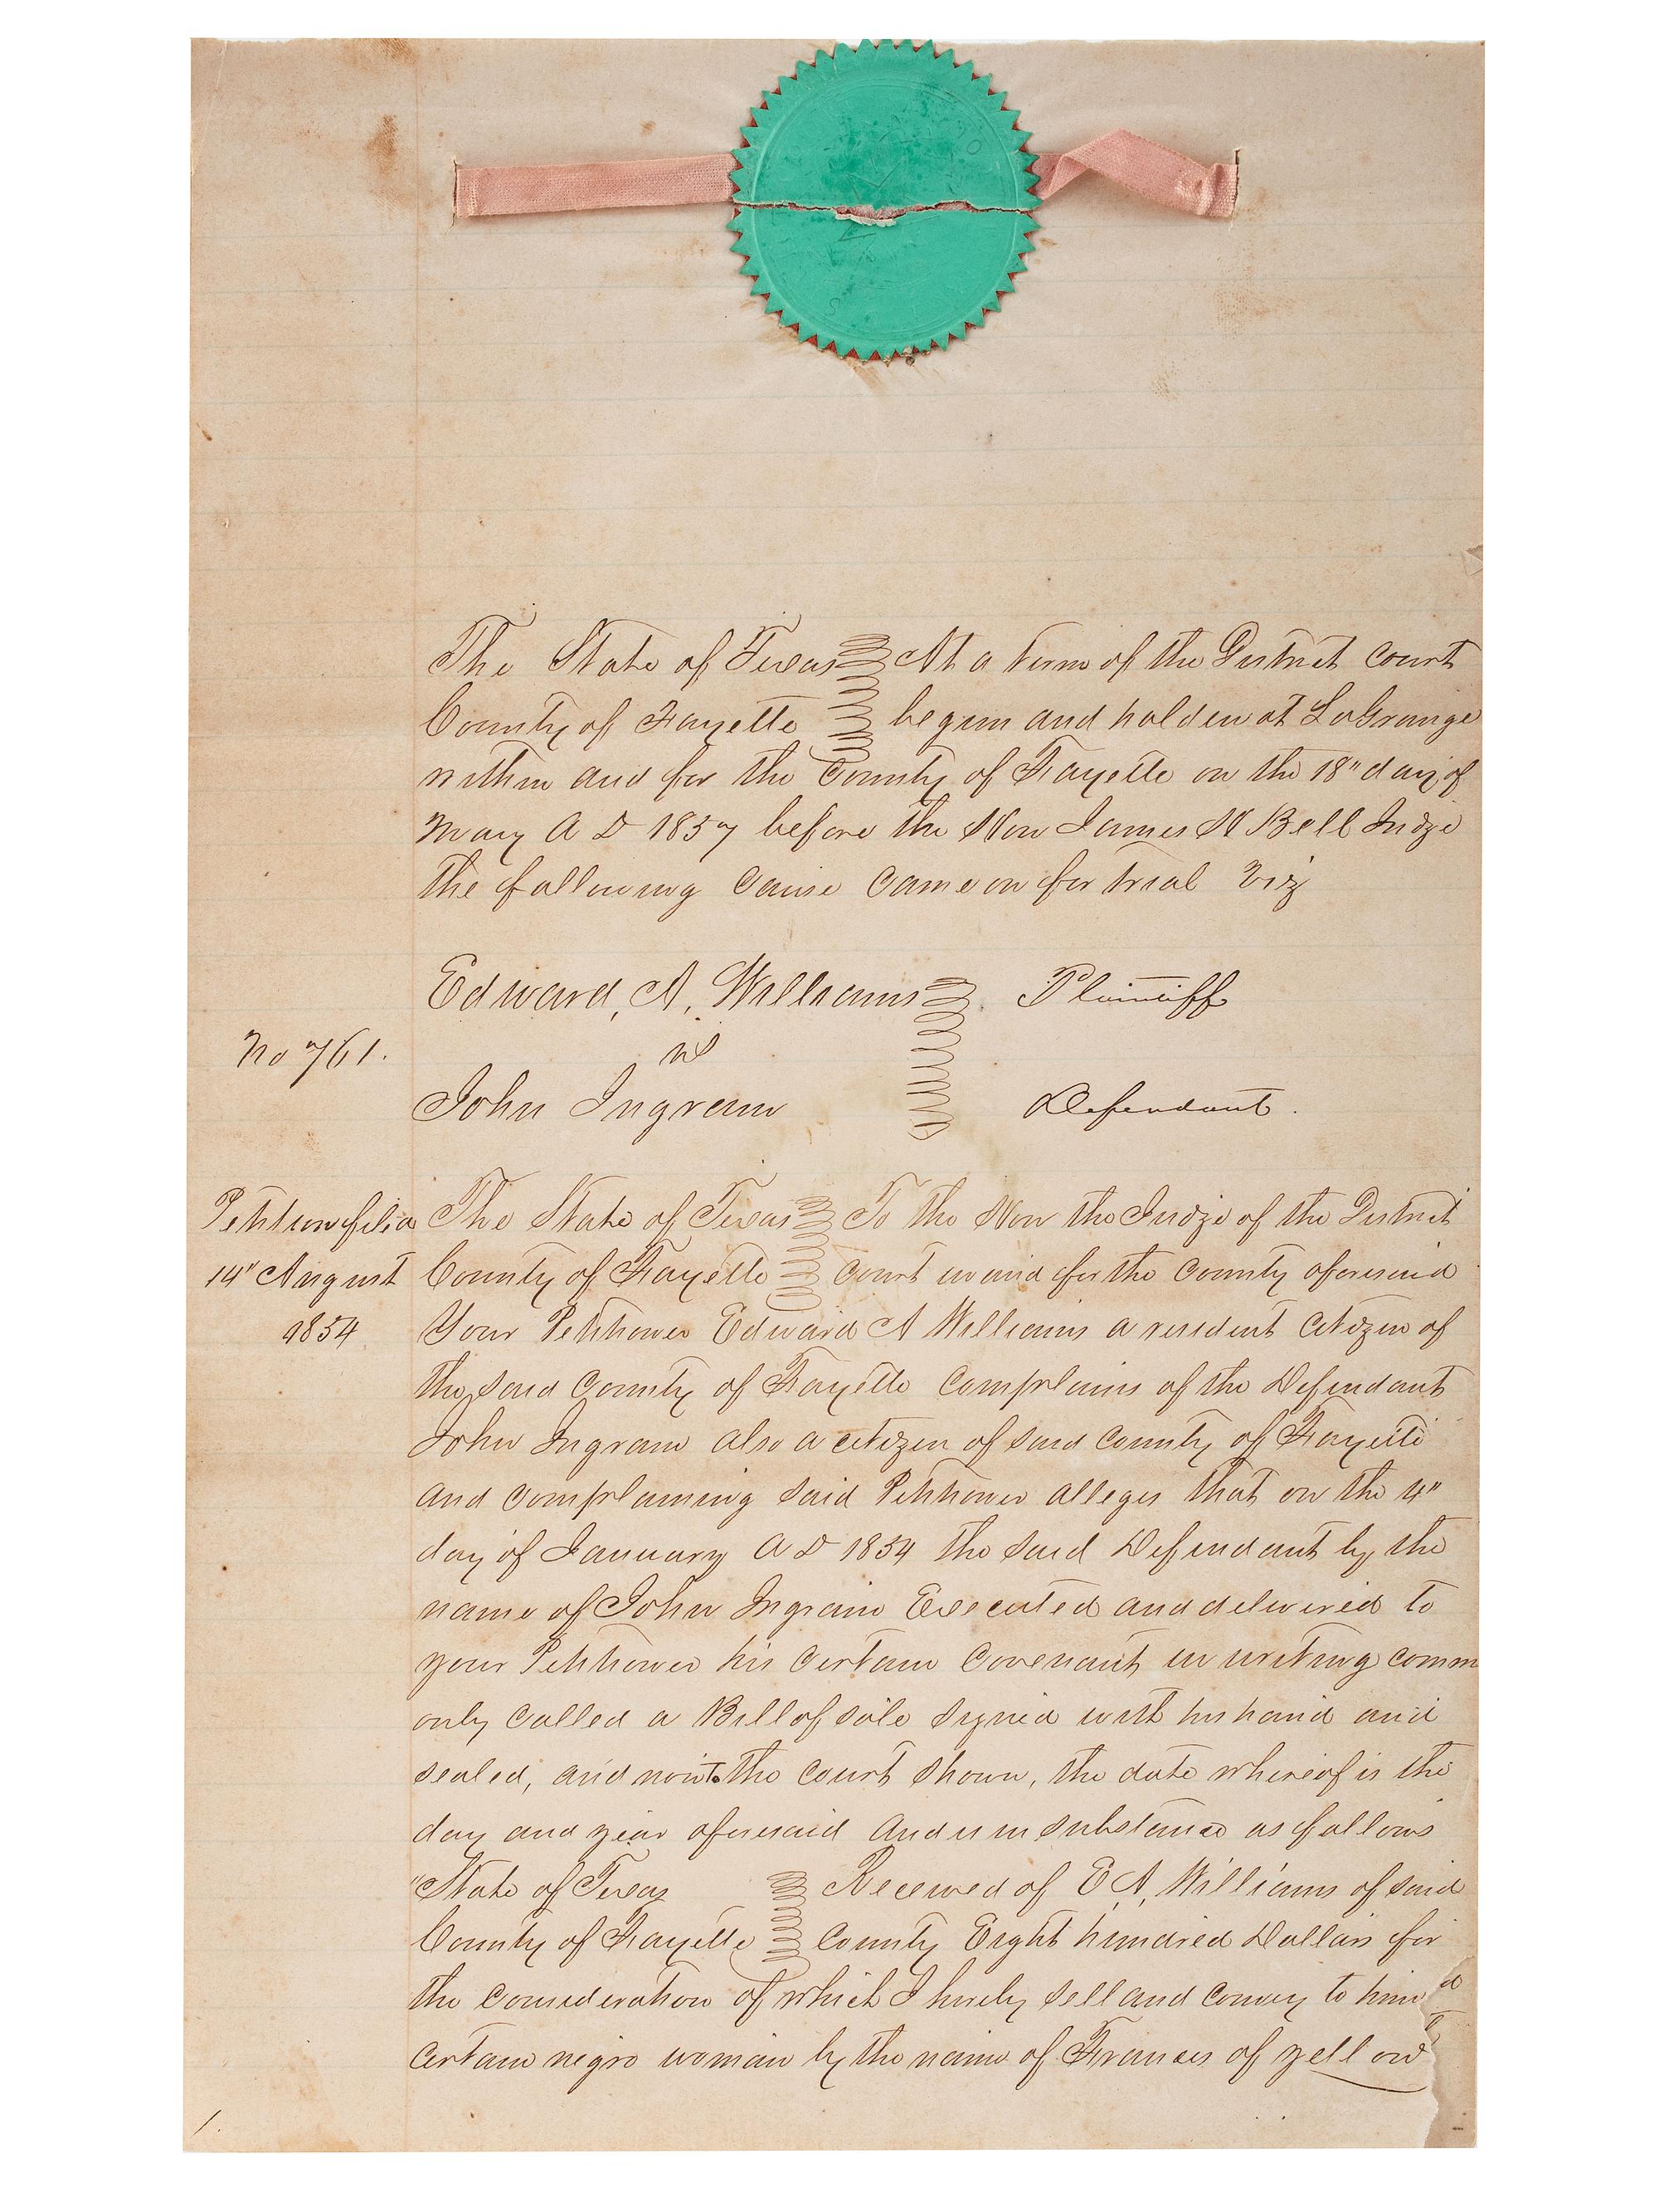 The State of Texas At a Term of the District Court
County of Fayette begun and holden at LaGrange
within and for the County of Fayette on the 18" day of
May A D 1857 before the Hon James H Bell Judge
the following cause came on for trial Viz
Edward, A, Williams Plaintiff
No 761. vs
John Ingram Defendant.
Petition filed The State of Texas To the Hon the Judge of the District
14" August County of Fayette Court in and for the County aforesaid
1854 Your Petitioner Edward A Williams a resident Citizen of
the said County of Fayette complains of the Defendant
John Ingram also a citizen of said County of Fayette
and complaining said Petitioner alleges that on the 4"
day of January A D 1854 the said Defendant by the
name of John Ingram Executed and delivered to
your Petitioner his certain Covenant in writing comm
only called a Bill of sale signed with his hand and
sealed, and now to the court shown, the date whereof is the
day and year aforesaid and is in substance as follows
"State of Texas Received of E A, Williams of said
County of Fayette County Eight hundred Dollars for
the consideration of which I hereby sell and convey to him a
certain negro woman by the name of Frances of yellow
1.